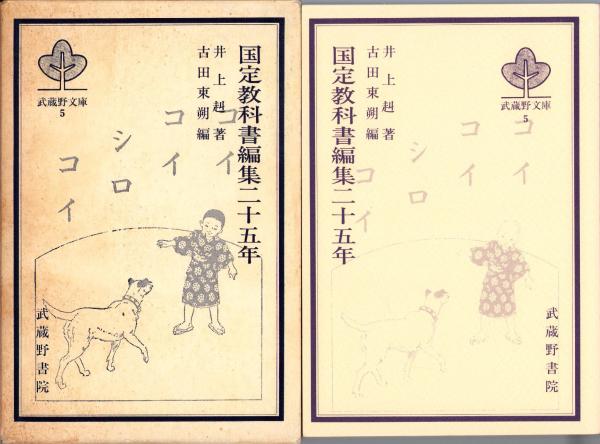 国定教科書編集二十五年
井上赳著
古田東朔編
武蔵野文庫
5
コイ
コイ
シロ
コイ
武蔵野書院
武蔵野文庫
5
井上赳著
古田東朔編
国定教科書編集二十五年
コイ
コイ
シロ
コイ
武蔵野書院